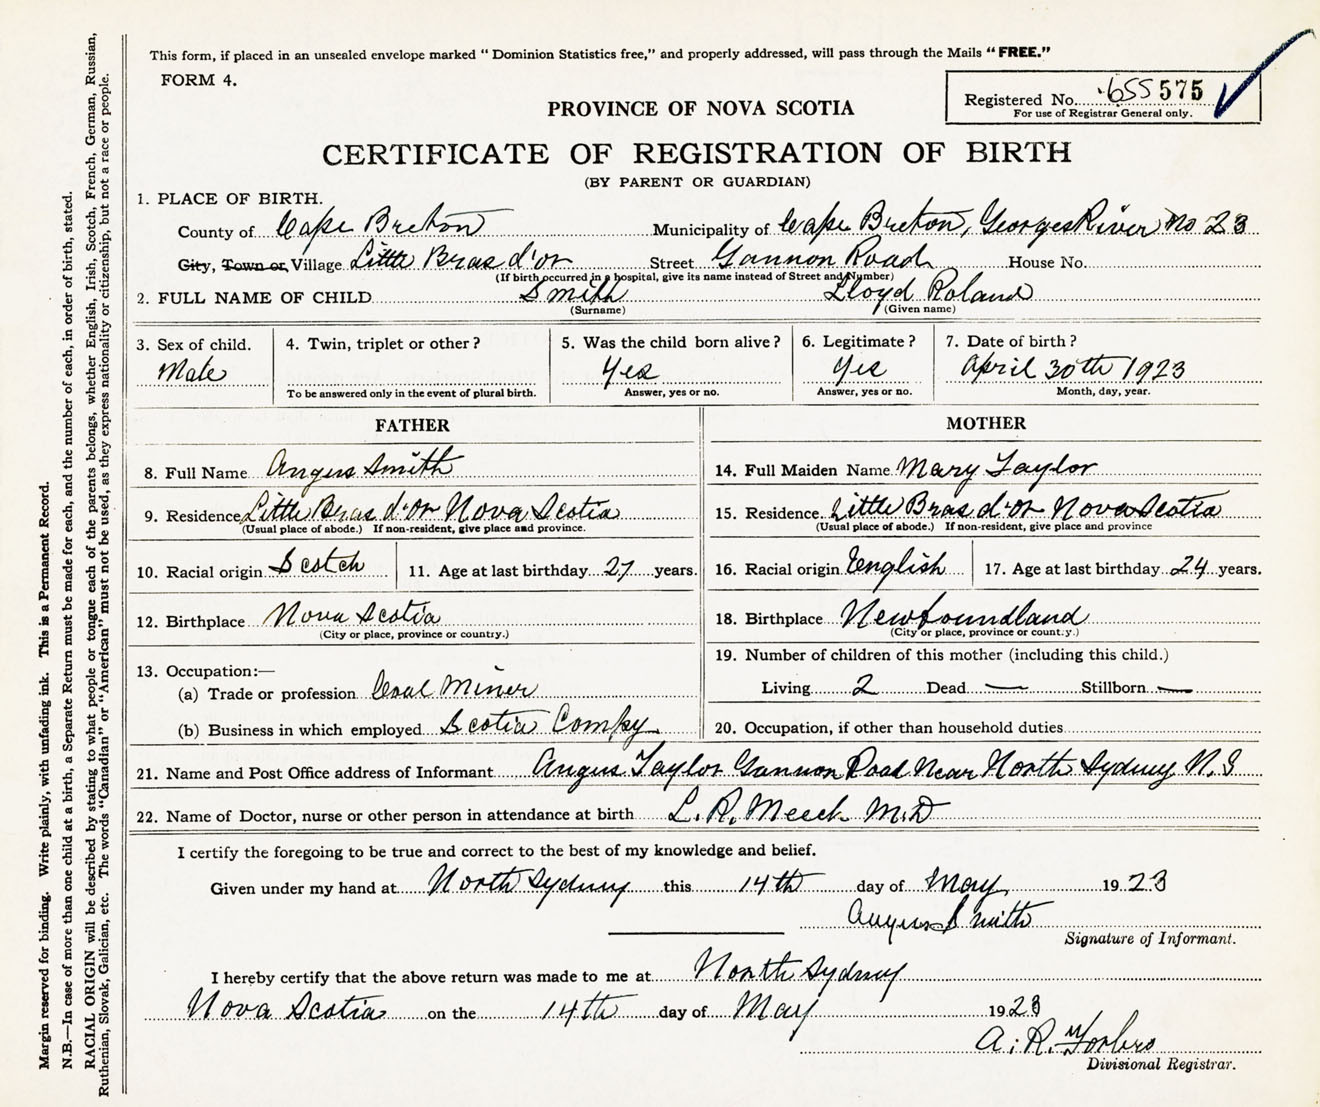 This form, if placed in an unsealed envelope marked "Dominion Statistics free," and properly addressed, will pass through the Mails "FREE."
FORM 4.
Registered No. 655 575
For use of Registrar General only.
PROVINCE OF NOVA SCOTIA
CERTIFICATE OF REGISTRATION OF BIRTH
(BY PARENT OR GUARDIAN)
1. PLACE OF BIRTH.
County of Cape Breton Municipality of Cape Breton, Georges River No 23
City, Town or, Village Little Bras d'or Street Gannon Road House No.
(If birth occurred in a hospital, give its name instead of Street and Number)
2. FULL NAME OF CHILD Smith Lloyd Roland
(Surname) (Given name)
3. Sex of child. 4. Twin, triplet or other? 5. Was the child born alive? 6. Legitimate? 7. Date of birth?
Male Yes Yes April 30th 1923
To be answered only in the event of plural birth. Answer, yes or no. Answer, yes or no. Month, day, year.
FATHER MOTHER
8. Full Name Angus Smith 14. Full Maiden Name Mary Taylor
9. Residence Little Bras d'or Nova Scotia 15. Residence Little Bras d'or Nova Scotia
(Usual place of abode.) If non-resident, give place and province. (Usual place of abode.) If non-resident, give place and province
10. Racial origin Scotch 11. Age at last birthday 27 years. 16. Racial origin English 17. Age at last birthday 24 years.
12. Birthplace Nova Scotia 18. Birthplace Newfoundland
(City or place, province or country.) (City or place, province or country.)
13. Occupation:— 19. Number of children of this mother (including this child.)
(a) Trade or profession Coal Miner Living 2 Dead — Stillborn —
(b) Business in which employed Scotia Compy 20. Occupation, if other than household duties
21. Name and Post Office address of Informant Angus Taylor Gannon Road Near North Sydney N.S
22. Name of Doctor, nurse or other person in attendance at birth L. R. Meech M.D
I certify the foregoing to be true and correct to the best of my knowledge and belief.
Given under my hand at North Sydney this 14th day of May 1923
Angus Smith
Signature of Informant.
I hereby certify that the above return was made to me at North Sydney
Nova Scotia on the 14th day of May 1923
A. R. Forbes
Divisional Registrar.
Margin reserved for binding. Write plainly, with unfading ink. This is a Permanent Record.
N.B.—In case of more than one child at a birth, a Separate Return must be made for each, and the number of each, in order of birth, stated.
RACIAL ORIGIN will be described by stating to what people or tongue each of the parents belongs, whether English, Irish, Scotch, French, German, Russian,
Ruthenian, Slovak, Galician, etc. The words "Canadian" or "American" must not be used, as they express nationality or citizenship, but not a race or people.